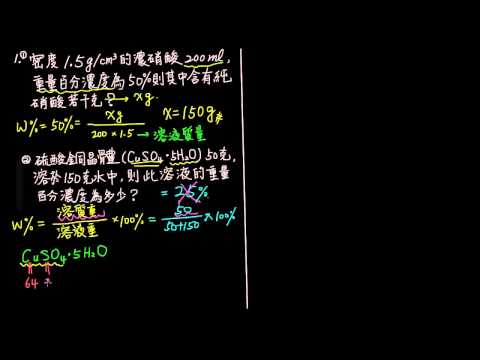 1.① 密度 1.5g/cm³的濃硝酸200ml,
重量百分濃度為50%則其中含有純
硝酸若干克? → xg.
W%=50%= xg / 200×1.5 → 溶液質量 x=150g#
② 硫酸銅晶體(CuSO₄·5H₂O) 50克,
溶於150克水中,則此溶液的重量
百分濃度為多少? = 25%
W%= 溶質重 / 溶液重 ×100% = 50 / 50+150 ×100%
CuSO₄·5H₂O
64